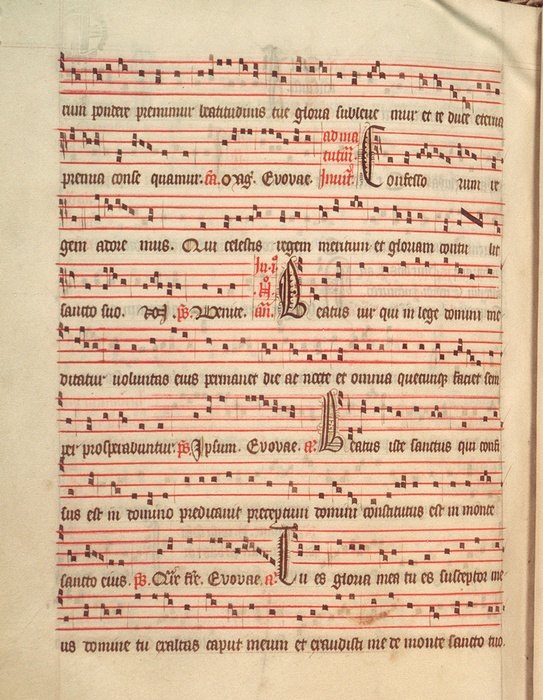 tum pondere premimur beatitudinis tue gloria subleue mur et te duce eterna
premia conse quamur. ca. Evovae. ad ma
tutin̄. Inuit. Confesso rum re
gem adore mus. Qui celestis regem meritum et gloriam contu lit
sancto suo. ps. Venite. In .i. an̄. Beatus uir qui in lege domini me
ditatur uoluntas eius permanet die ac nocte et omnia quecunqꝫ faciet sem
per prosperabuntur. ps. Ipsum. Evovae. a. Beatus iste sanctus qui confi
sus est in domino predicauit preceptum domini constitutus est in monte
sancto eius. ps. Evovae. a. Tu es gloria mea tu es susceptor me
us domine tu exaltas caput meum et exaudisti me de monte sancto tuo.